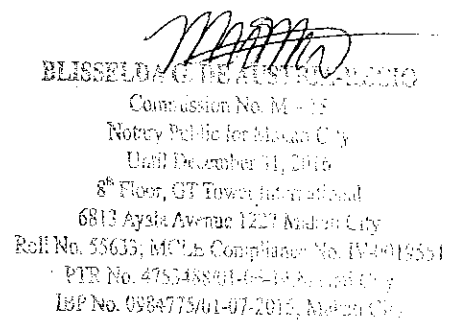 BLISSELDA G. DE
Commission No. M - 15
Notary Public for Makati City
Until December 31, 2016
8th Floor, GT Tower International
6813 Ayala Avenue 1227 Makati City
Roll No. 55633; MCLE Compliance No.
PTR No. Makati City
IBP No. 0984775/01-07-2015, Makati City